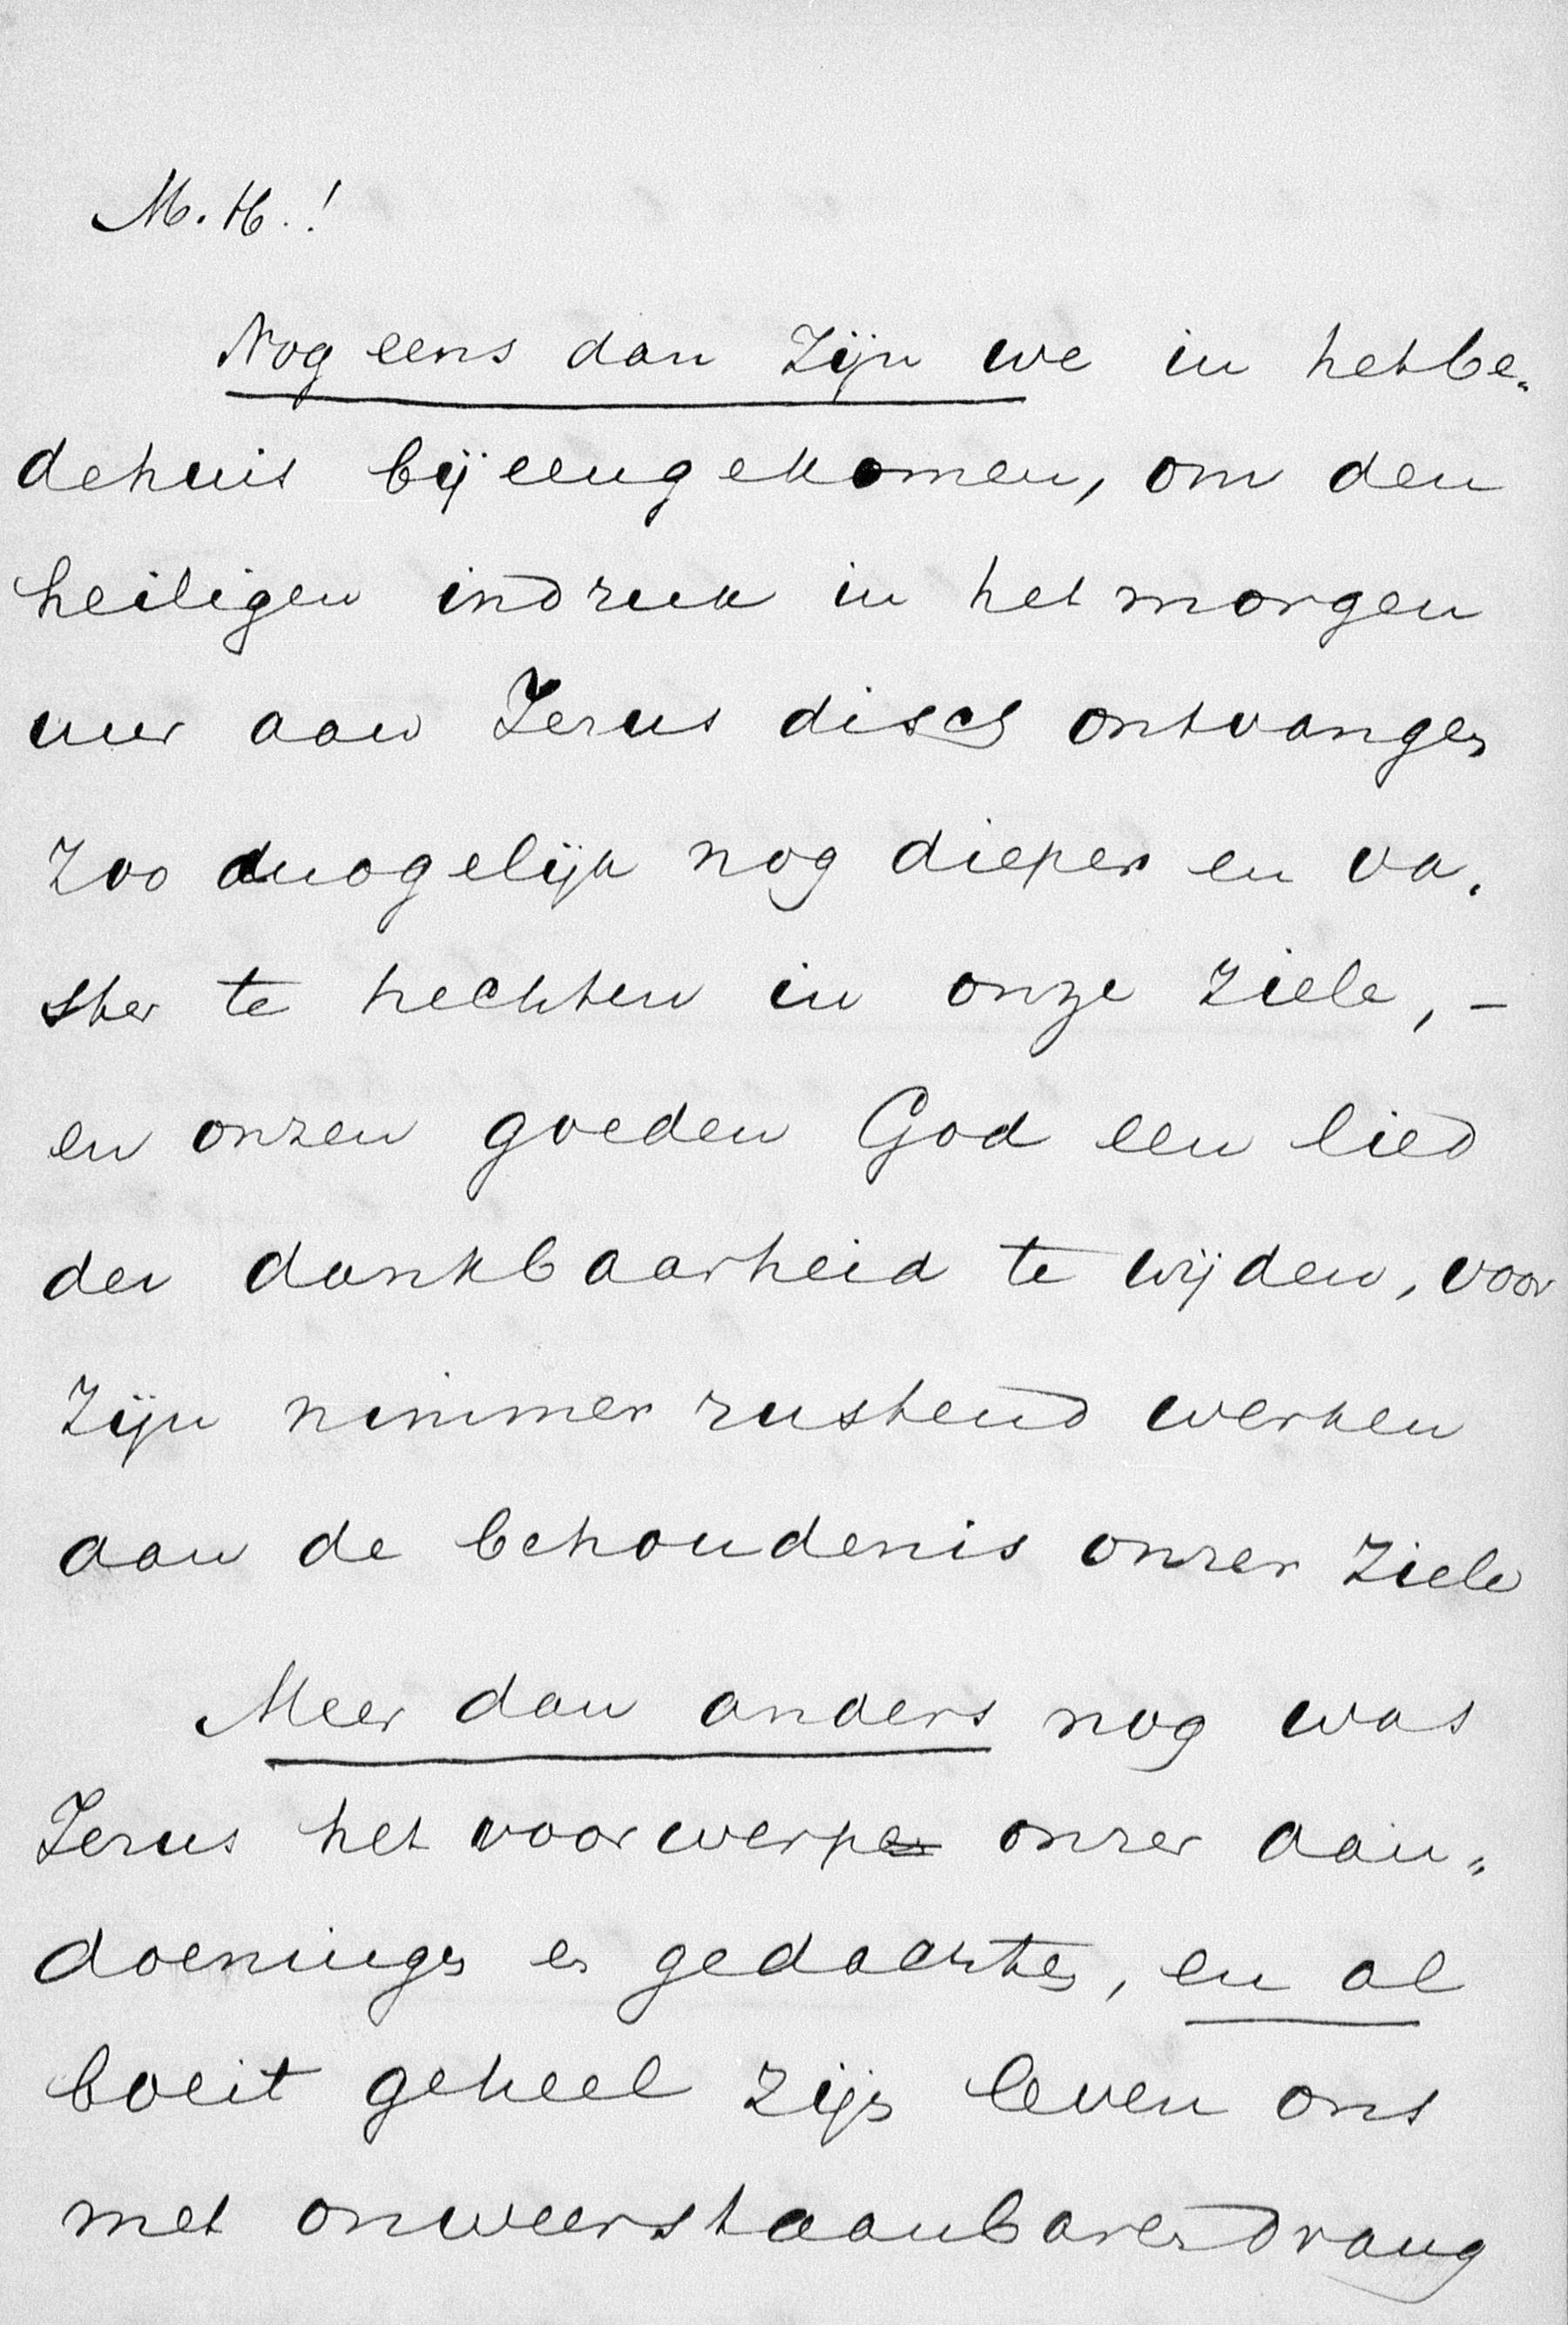 M. H.!
Nog eens dan zijn we in het be„
dehuis bijeengekomen, om den
heiligen indruk in het morgen
uur aan Jezus disch ontvangen
zoo mogelijk nog dieper en va„
ster te hechten in onze ziele, –
en onzen goeden God een lied
der dankbaarheid te wijden, voor
zijn nimmer rustend werken
aan de behoudenis onzer ziele
Meer dan anders nog was
Jezus het voorwerp onzer aan„
doeningen en gedachten, en al
boeit geheel zijn leven ons
met onweerstaanbaren drang